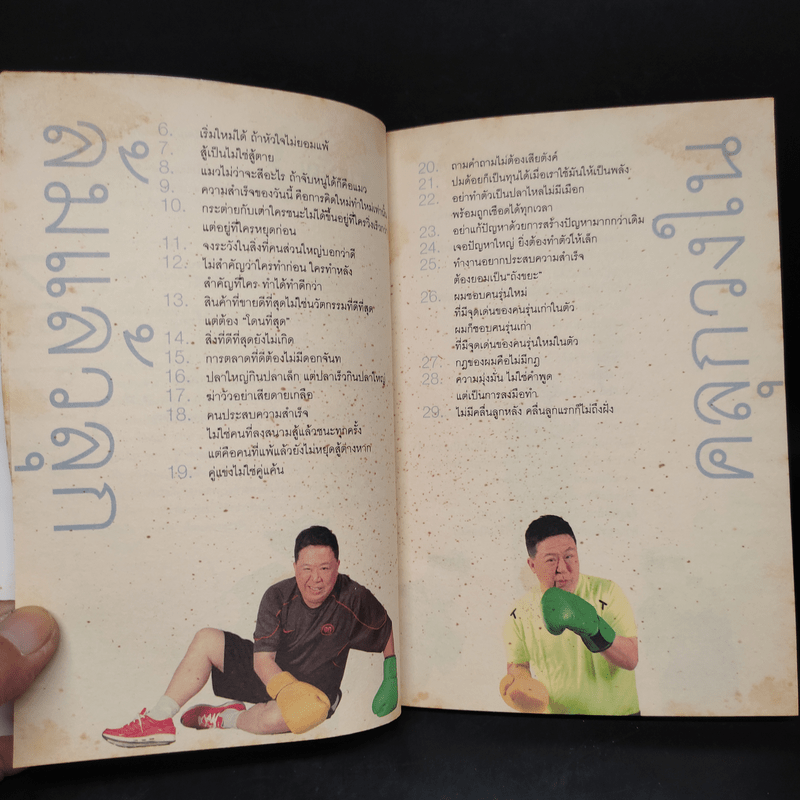 ล้มแล้วลุก
6. เริ่มใหม่ได้ ถ้าหัวใจไม่ยอมแพ้
7. สู้เป็นไม่ใช่สู้ตาย
8. แมวไม่ว่าจะสีอะไร ถ้าจับหนูได้ก็คือแมว
9. ความสำเร็จของวันนี้ คือการคิดใหม่ทำใหม่เท่านั้น
10. กระต่ายกับเต่าใครชนะไม่ได้ขึ้นอยู่ที่ใครวิ่งเร็วกว่า
แต่อยู่ที่ใครหยุดก่อน
11. จงระวังในสิ่งที่คนส่วนใหญ่บอกว่าดี
12. ไม่สำคัญว่าใครทำก่อน ใครทำหลัง
สำคัญที่ใคร ทำได้ทำดีกว่า
13. สินค้าที่ขายดีที่สุดไม่ใช่นวัตกรรมที่ดีที่สุด
แต่ต้อง "โดนที่สุด"
14. สิ่งที่ดีที่สุดยังไม่เกิด
15. การตลาดที่ดีต้องไม่มีดอกจันท
16. ปลาใหญ่กินปลาเล็ก แต่ปลาเร็วกินปลาใหญ่
17. ฆ่าวัวอย่าเสียดายเกลือ
18. คนประสบความสำเร็จ
ไม่ใช่คนที่ลงสนามสู้แล้วชนะทุกครั้ง
แต่คือคนที่แพ้แล้วยังไม่หยุดสู้ต่างหาก
19. คู่แข่งไม่ใช่คู่แค้น
20. ถามคำถามไม่ต้องเสียตังค์
21. ปมด้อยก็เป็นทุนได้เมื่อเราใช้มันให้เป็นพลัง
22. อย่าทำตัวเป็นปลาไหลไม่มีเมือก
พร้อมถูกเชือดได้ทุกเวลา
23. อย่าแก้ปัญหาด้วยการสร้างปัญหามากกว่าเดิม
24. เจอปัญหาใหญ่ ยิ่งต้องทำตัวให้เล็ก
25. ทำงานอยากประสบความสำเร็จ
ต้องยอมเป็น"ถังขยะ"
26. ผมชอบคนรุ่นใหม่
ที่มีจุดเด่นของคนรุ่นเก่าในตัว
ผมก็ชอบคนรุ่นเก่า
ที่มีจุดเด่นของคนรุ่นใหม่ในตัว
27. กฎของผมคือไม่มีกฎ
28. ความมุ่งมั่น ไม่ใช่คำพูด
แต่เป็นการลงมือทำ
29. ไม่มีคลื่นลูกหลัง คลื่นลูกแรกก็ไม่ถึงฝั่ง